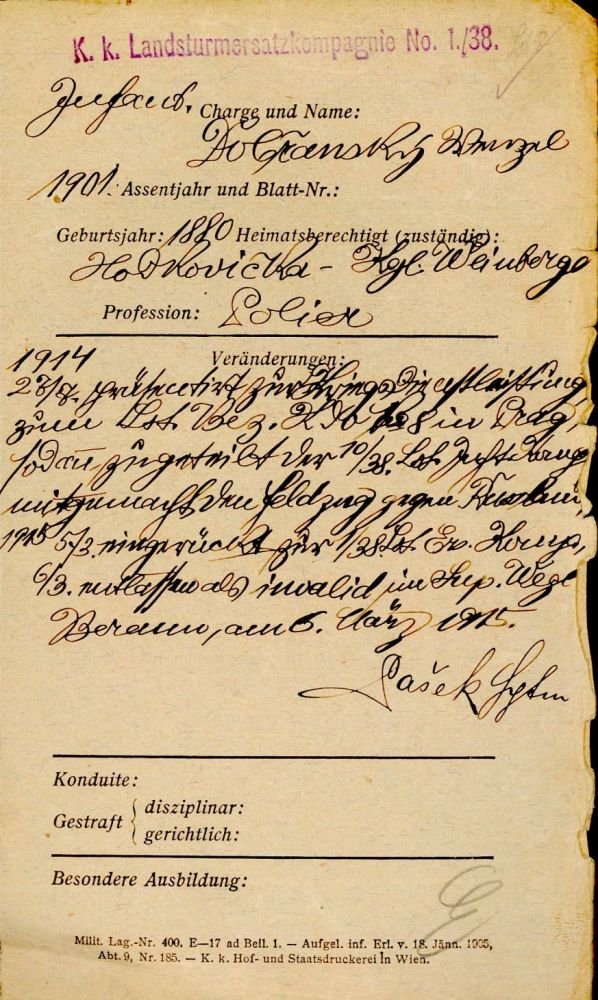 K. k. Landsturmersatzkompagnie No. 1./38.
Infant. Charge und Name:
Dobranský Wenzel
1901. Assentjahr und Blatt-Nr.:
Geburtsjahr: 1880 Heimatsberechtigt (zuständig):
Hodkovička - Kgl. Weinberge
Profession: Polier
1914 Veränderungen:
präsentirt zur Kriegsdienstleistung
zum Lst. Bez. Kdo in Prag,
sodann zugeteilt der 10/38. Lst. Inft. Komp
mitgemacht den Feldzug gegen
1915 5/3. eingerückt zur 1/38 Lst. Ers. Komp.,
6/3. entlassen als invalid im Sup. Wege
Beraun, am 6. März 1915.
Pašek Hptm
Konduite:
Gestraft { disziplinar:
gerichtlich:
Besondere Ausbildung:
Milit. Lag.-Nr. 400. E—17 ad Beil. 1. — Aufgel. inf. Erl. v. 18. Jänn. 1905,
Abt. 9, Nr. 185. — K. k. Hof- und Staatsdruckerei in Wien.